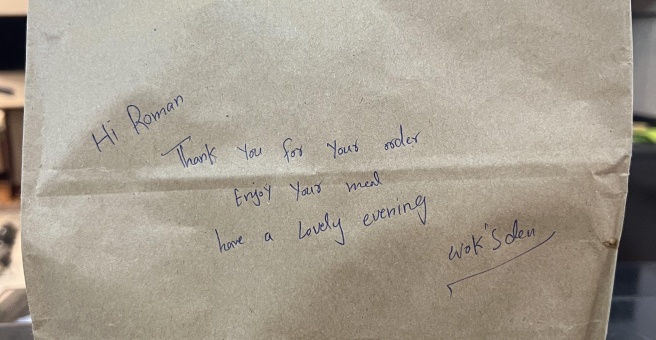 Hi Roman
Thank You for Your order
Enjoy Your meal
have a Lovely evening
Wok'S den